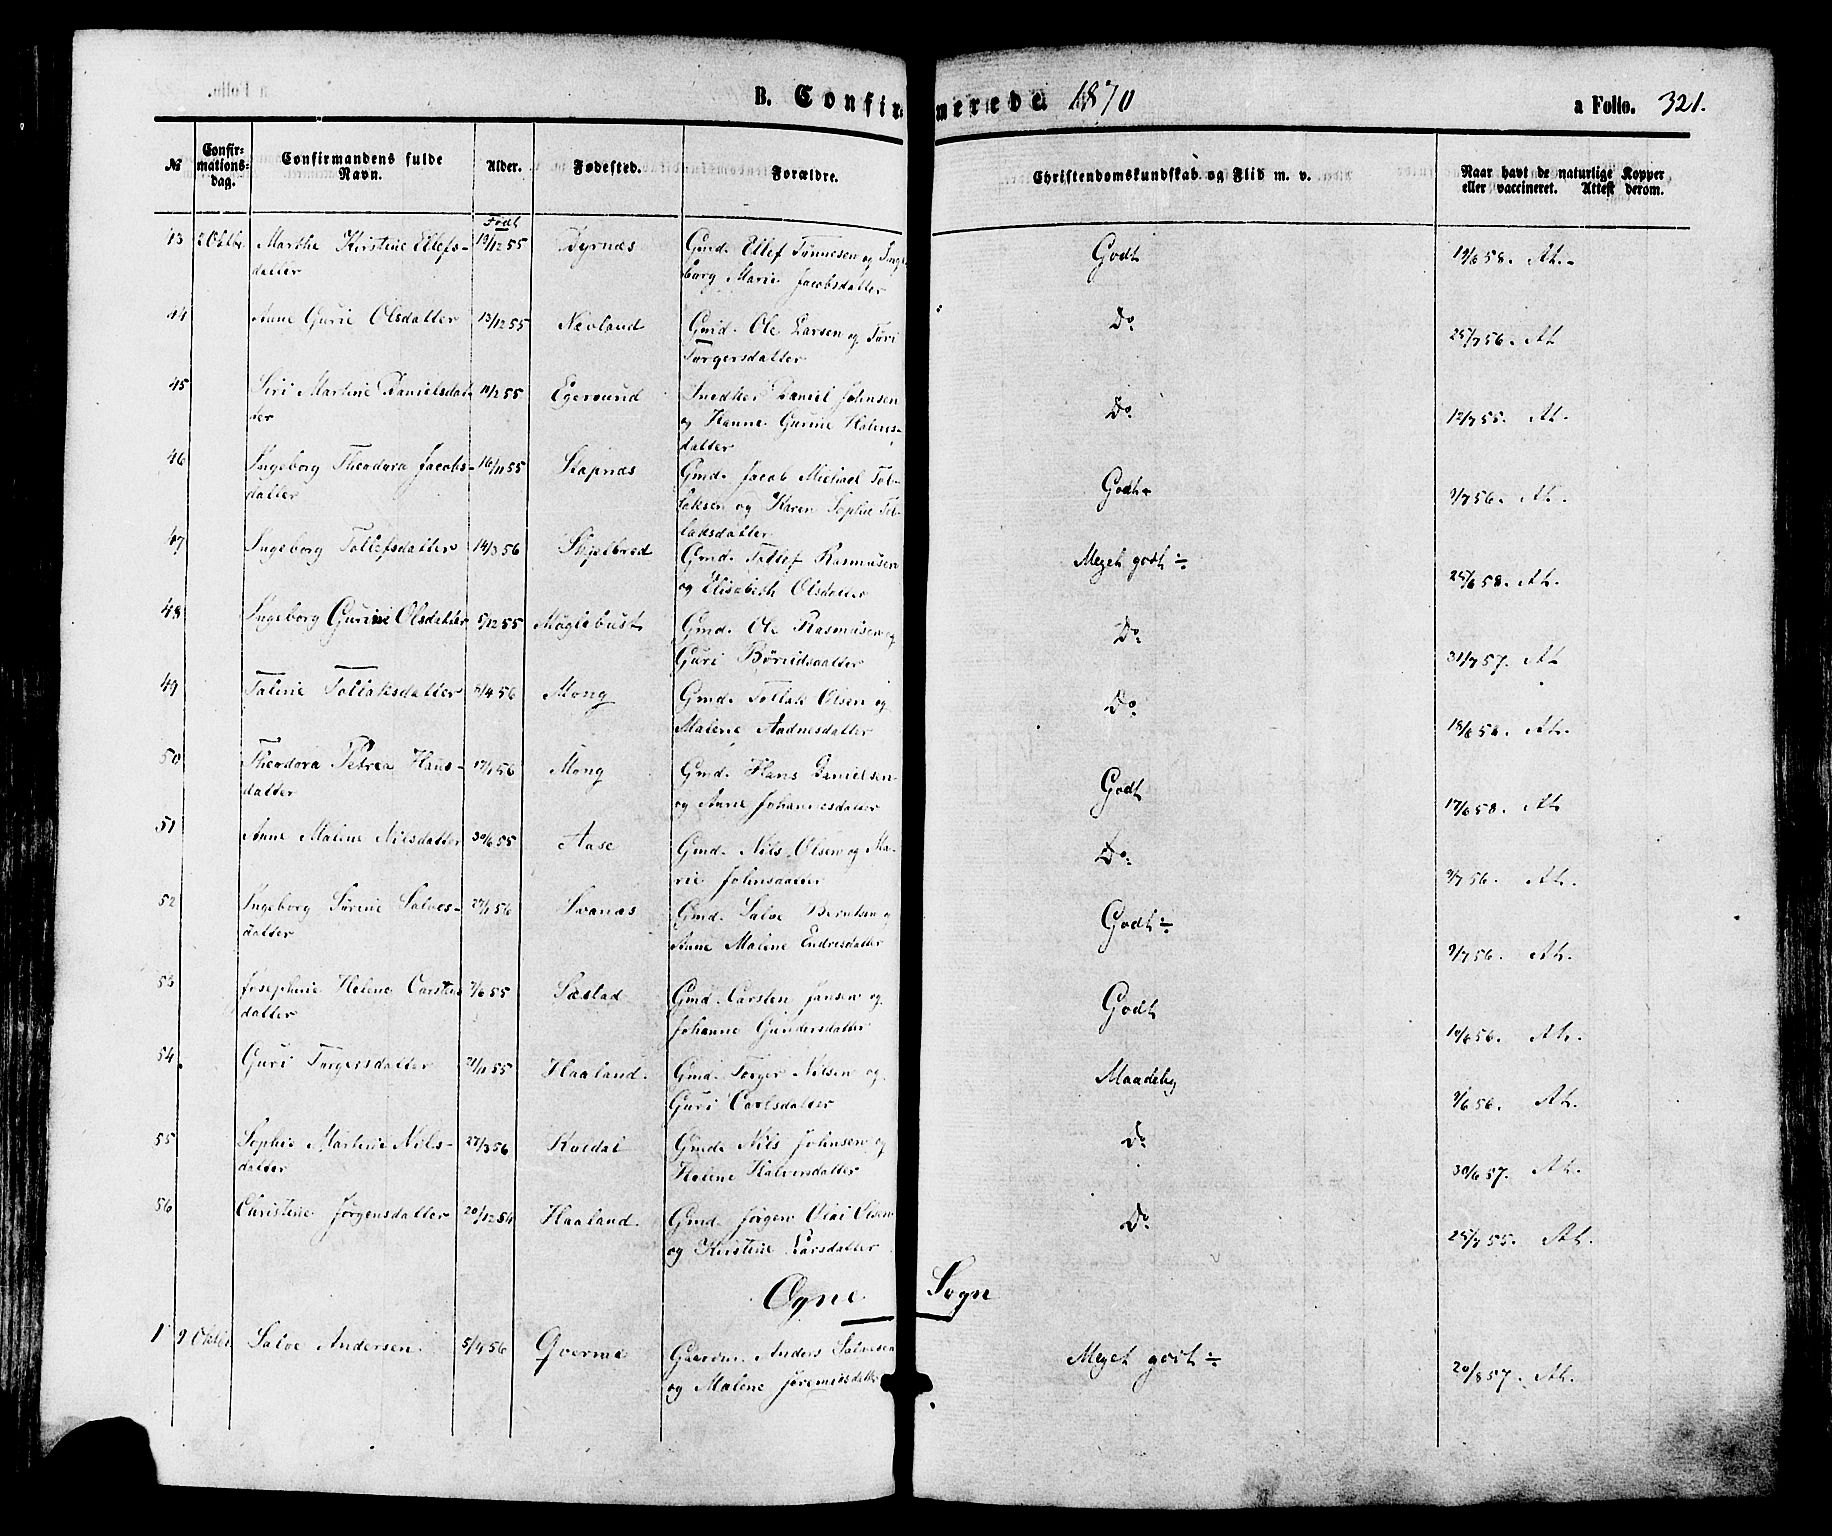 B. Confirmerede 1870
a Folio. 321.
№
Confir-
mations-
dag.
Confirmandens fulde
Navn.
Alder.
Fødested.
Forældre.
Christendomskundskab og Flid m. v.
Naar havt de naturlige Kopper
eller vaccineret. Attest derom.
Født
43 2 Oktbr. Marthe Kirstine Ellefs- 19/12 55 Byrnæs Gmd. Ellef Tønnesen og Inge- Godt 19/6 58. At.
datter borg Marie Jacobsdatter
44 Anne Gurie Olsdatter 13/12 55 Nevland Gmd. Ole Larsen og Turi Do. 25/7 56. At.
Torgersdatter
45 Siri Martine Danielsdat- 11/2 55 Egersund Snedker Daniel Johnsen Do. 12/7 55. At.
ter og Hanne Gurine
datter
46 Ingeborg Theodora Jacobs- 16/11 55 Stapnæs Gmd. Jacob Michael Tol- Godt 9/7 56. At.
datter laksen og Karen Sophie Tol-
laksdatter
47 Ingeborg Tollefsdatter 14/3 56 Skjelbred Gmd. Tollef Rasmusen Meget godt ÷ 25/6 58. At.
og Elisabeth Olsdatter
48 Ingeborg Gurine Olsdatter 5/12 55 Møglebust Gmd. Ole Rasmusen og Do. 31/7 57. At
Guri
49 Taline Tollaksdatter /4 56 Mong Gmd. Tollak Olsen og Do. 18/6 58. At.
Malene Aadnesdatter
50 Theodora Petrea Hans- 17/1 56 Mong Gmd. Hans Danielsen Godt 17/6 58. At
datter og Anne Johannesdatter
51 Anne Malene Nilsdatter 30/6 55 Aase Gmd. Nils Olsen og Ma- Do. 9/7 56. At.
rie Johnsdatter
52 Ingeborg Sørine Salves- 27/1 56 Svanæs Gmd. Salve Berntsen og Godt ÷ 9/7 56. At.
datter Anne Malene Endresdatter
53 Josephine Helene Carstens 7/6 55 Sæstad Gmd. Carsten Jansen og Godt 10/6 56. At.
datter Johanne Gundersdatter
54. Guri Torgersdatter 21/1 55 Haaland. Gmd. Torger Nilsen og Maadelig 9/6 56. At.
Guri Carlsdatter
55 Sophie Martine Nils- 27/3 56 Koldal Gmd. Nils Johnsen og Do. 30/6 57. At.
datter Helene Halvorsdatter
56 Christine Jørgensdatter 20/12 54 Haaland. Gmd. Jørgen Olai Olsen Do. 25/7 55. At.
og Kirstine Larsdatter
Ogne Sogn
1 9 Oktbr Salve Andersen. 5/4 56 Qverme Gaardm. Anders Salvesen Meget godt ÷ 20/8 57. At.
og Malene Jøremiasdatter